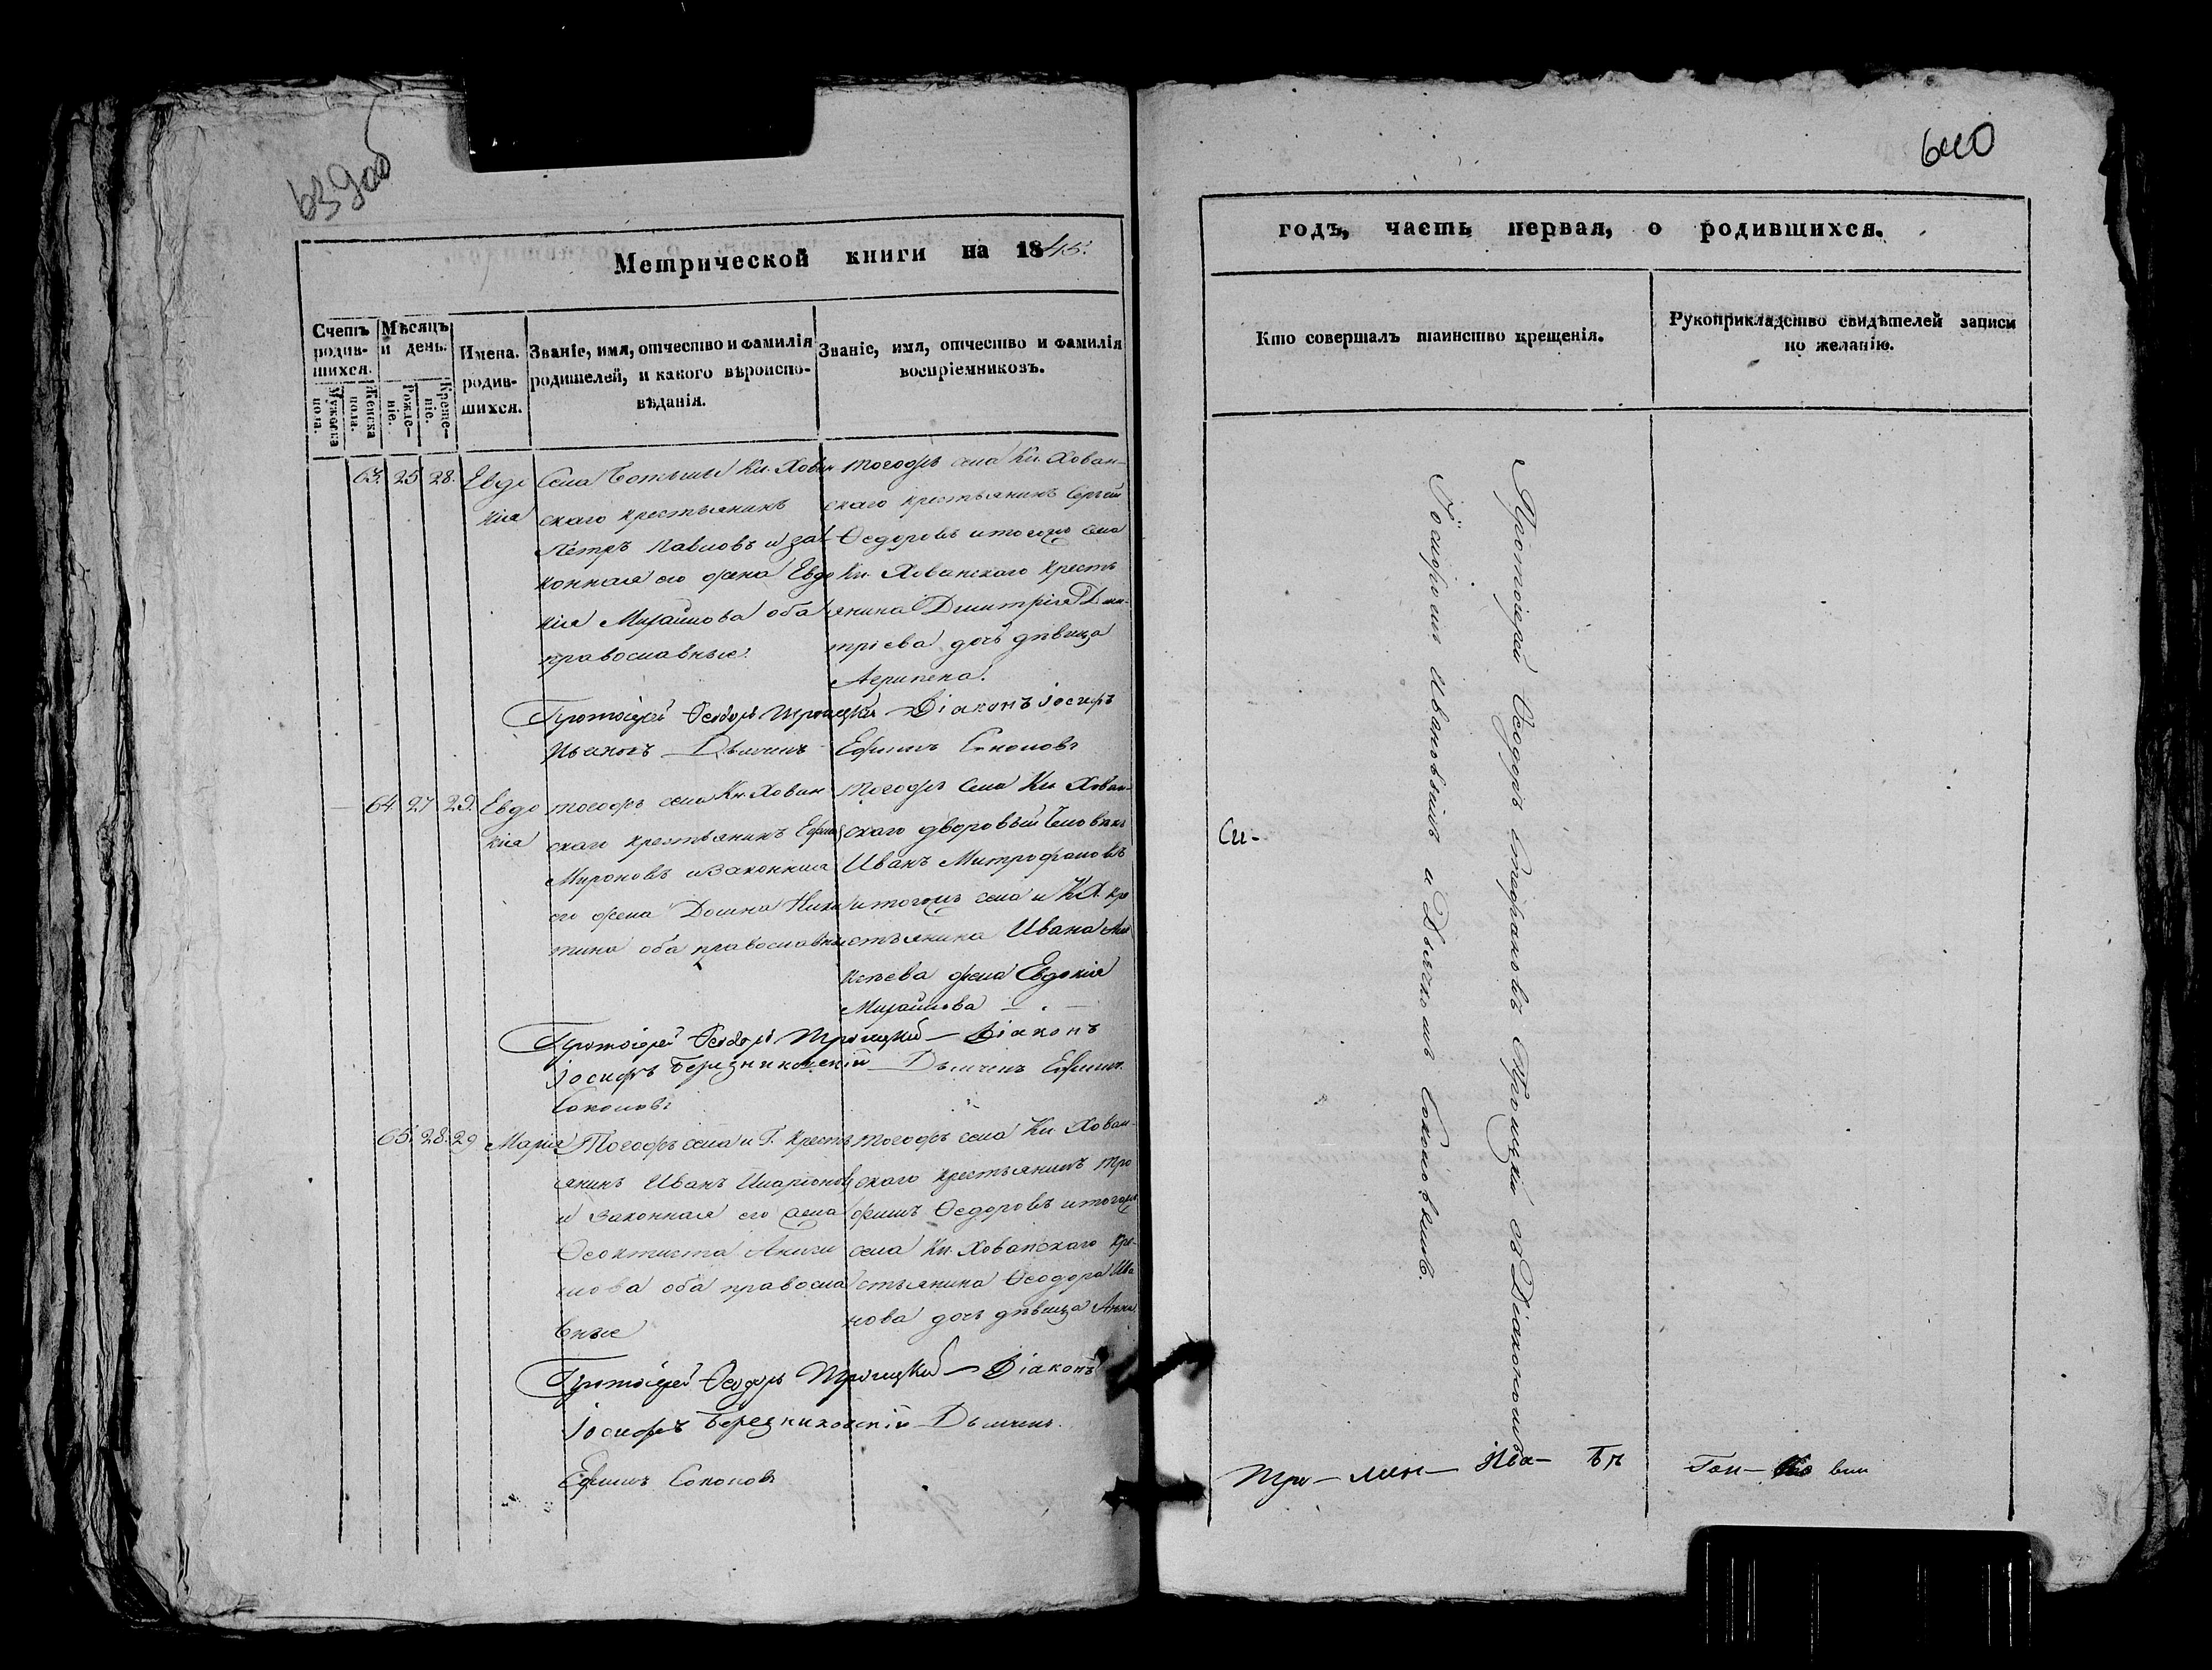 639 об
640
Метрической книги на 1845.
годъ, часть первая, о родившихся.
Счетъ родив-шихся.
Мужеска пола.
Женска пола.
Мѣсяцъ и день.
Рожде-ніе.
Креще-ніе.
Имена. родив-шихся.
Званіе, имя, отчество и фамилія
родителей, и какого вѣроиспо-
вѣданія.
Званіе, имя, отчество и фамилія
воспріемниковъ.
Кто совершалъ таинство крещенія.
Рукоприкладство свидѣтелей записи
по желанію.
63. 25 28. Евдо
кія
Села Кн. Хован
скаго крестьянинъ
Петръ Павловъ и за
конная его жена Евдо
кія Михайлова оба
православные.
Тогожъ села Кн. Хован-
скаго крестьянинъ Сергей
Ѳедоровъ и тогожъ села
Кн. Хованскаго кресть
янина Димитрія Дми-
тріева дочь дѣвица
Агрипена.
Протоіерей Ѳеодоръ Троицкій Діаконъ Іосифъ
Ивановъ Дьячекъ Ефимъ Соколовъ
64 27 29. Евдо
кія
тогожъ села Кн. Хован
скаго крестьянинъ Ефимъ
Мироновъ и законная
его жена Домна Ники
тина оба православные
Тогожъ села Кн. Хован-
скаго дворовый человѣкъ
Иванъ Митрофановъ
и тогожъ села и К.Х. кре
стьянина Ивана Ма
кѣева жена Евдокія
Михайлова
Протоіерей Ѳеодоръ Троицкій Діаконъ
Іосифъ Березниковскій Дьячекъ Ефимъ
Соколовъ
65. 28. 29 Марія
Тогожъ села и Г. кресть
янинъ Иванъ Иларіоновъ
и законная его жена
Ѳеоктиста
оба правосла
вные
тогожъ села Кн. Хован-
скаго крестьянинъ Тро
фимъ Ѳедоровъ и тогожъ
села Кн. Хованскаго кре-
стьянина Ѳеодора Ива
нова дочь дѣвица Анна
Протоіерей Ѳеодоръ Троицкій Діаконъ
Іосифъ Березниковскій Дьячекъ
Ефимъ Соколовъ
Протоіерей Ѳеодоръ Стефановъ Троицкій съ Діакономъ
Іосифомъ Ивановымъ и Дьячкомъ Соколовымъ.